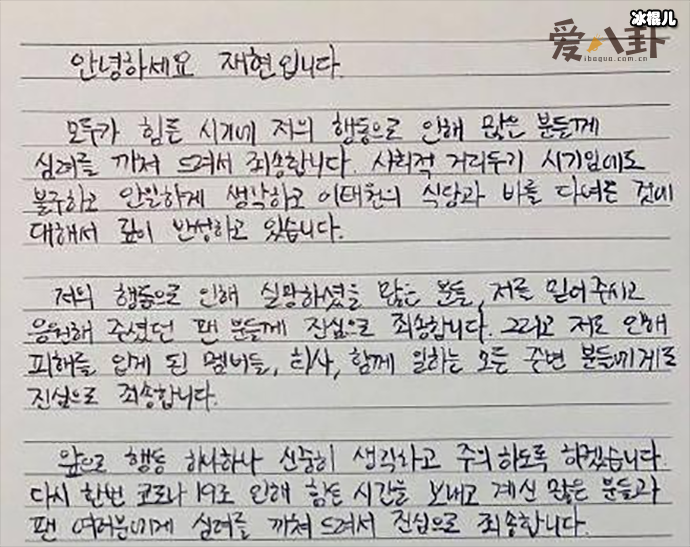 冰棍儿
爱八卦
ibagua.com.cn
안녕하세요 재현입니다.
모두가 힘든 시기에 저의 행동으로 인해 많은 분들께
심려를 끼쳐 드려서 죄송합니다. 사회적 거리두기 시기임에도
불구하고 안일하게 생각하고 이태원의 식당과 바를 다녀온 것에
대해서 깊이 반성하고 있습니다.
저의 행동으로 인해 실망하셨을 많은 분들, 저를 믿어주시고
응원해 주셨던 팬 분들께 진심으로 죄송합니다. 그리고 저로 인해
피해를 입게 된 멤버들, 회사, 함께 일하는 모든 주변 분들에게도
진심으로 죄송합니다.
앞으로 행동 하나하나 신중히 생각하고 주의 하도록 하겠습니다.
다시 한번 코로나19로 인해 힘든 시간을 보내고 계신 많은 분들과
팬 여러분에게 심려를 끼쳐 드려서 진심으로 죄송합니다.